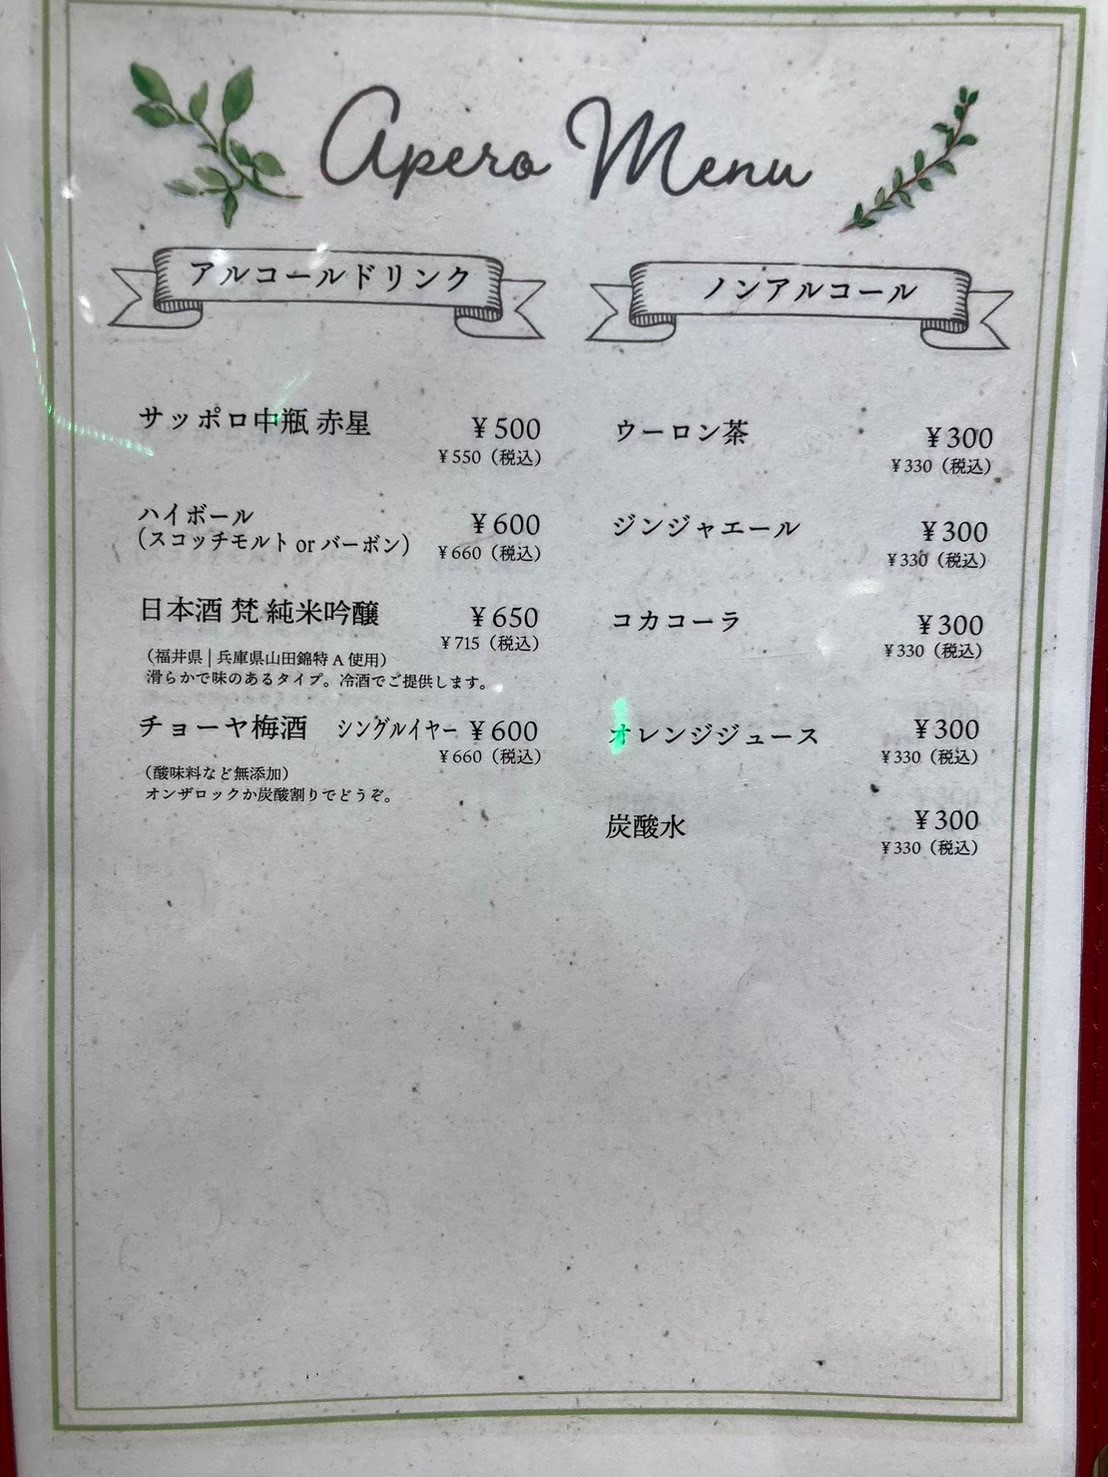 Apero Menu
アルコールドリンク
サッポロ中瓶 赤星 ¥500
¥550（税込）
ハイボール ¥600
(スコッチモルト or バーボン) ¥660（税込）
日本酒 梵 純米吟醸 ¥650
¥715（税込）
（福井県 | 兵庫県山田錦特A使用）
滑らかで味のあるタイプ。冷酒でご提供します。
チョーヤ梅酒 シングルイヤー ¥600
¥660（税込）
（酸味料など無添加）
オンザロックか炭酸割りでどうぞ。
ノンアルコール
ウーロン茶 ¥300
¥330（税込）
ジンジャエール ¥300
¥330（税込）
コカコーラ ¥300
¥330（税込）
オレンジジュース ¥300
¥330（税込）
炭酸水 ¥300
¥330（税込）